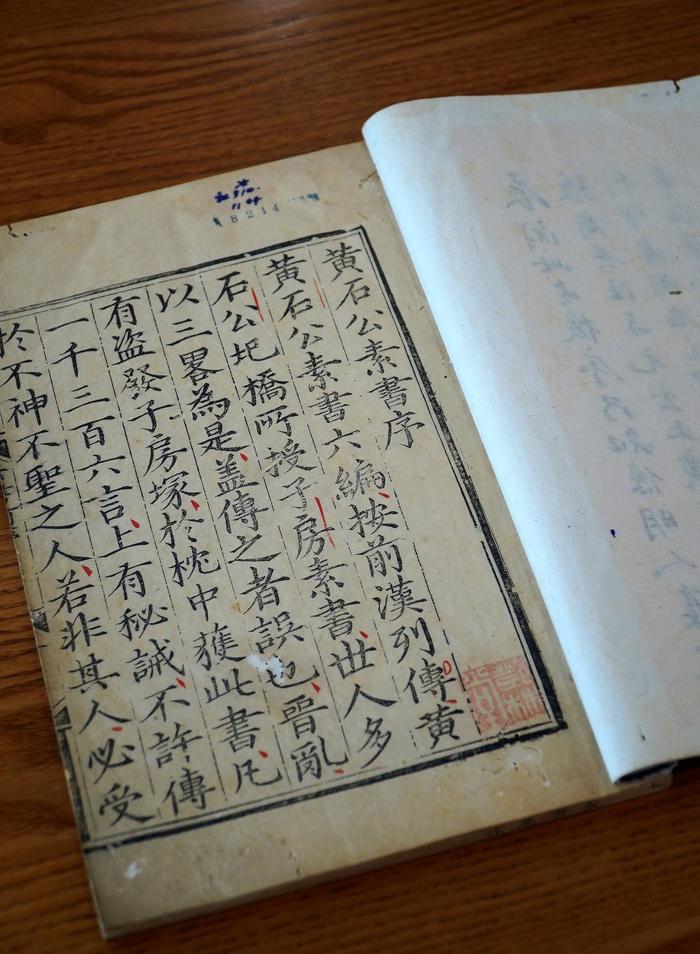 8214
黄石公素書序
黄石公素書六編按前漢列傳黄
石公圯橋所授子房素書世人多
以三畧為是盖傳之者誤也晉亂
有盗發子房塚於枕中獲此書凡
一千三百六言上有秘誡不許傳
於不神不聖之人若非其人必受